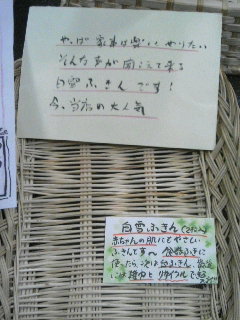 やっぱ家事は楽に やりたい
そんな声が聞こえて来る
白雪ふきんです！
今、当店の大人気
白雪ふきん
赤ちゃんの肌にもやさしい
ふきんです〜 食器ふきに
使ったら、次は台ふきん、最後
には雑巾と リサイクルできる